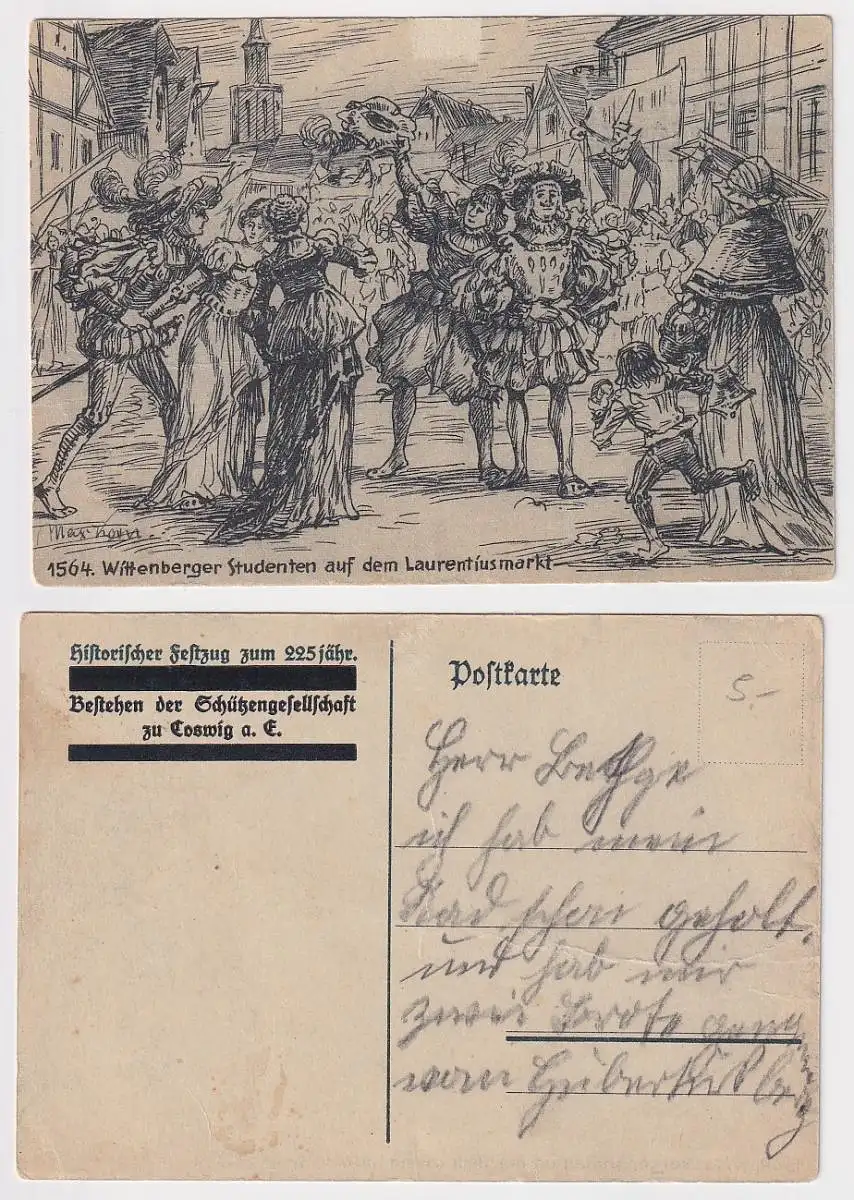 Max Horn.
1564. Wittenberger Studenten auf dem Laurentiusmarkt
Historischer Festzug zum 225jähr.
Bestehen der Schützengesellschaft
zu Coswig a. E.
Postkarte
5.-
Herr Bethge
ich hab mein
Rad schon geholt,
und hab mir
zwei Brote
vom